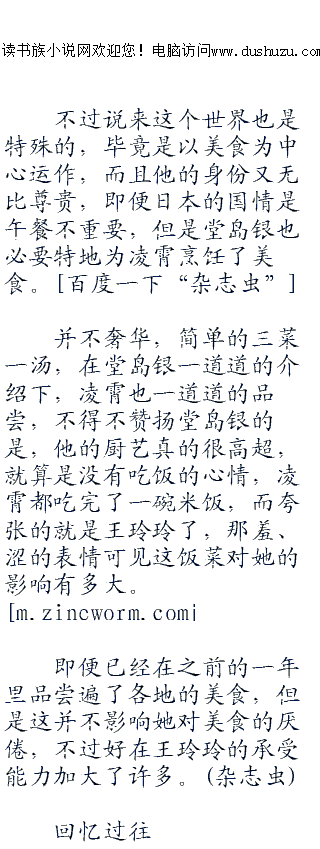 读书族小说网欢迎您！电脑访问www.dushuzu.com
不过说来这个世界也是
特殊的，毕竟是以美食为中
心运作，而且他的身份又无
比尊贵，即便日本的国情是
午餐不重要，但是堂岛银也
必要特地为凌霄烹饪了美
食。[百度一下“杂志虫”]
并不奢华，简单的三菜
一汤，在堂岛银一道道的介
绍下，凌霄也一道道的品
尝，不得不赞扬堂岛银的
是，他的厨艺真的很高超，
就算是没有吃饭的心情，凌
霄都吃完了一碗米饭，而夸
张的就是王玲玲了，那羞、
涩的表情可见这饭菜对她的
影响有多大。
[m.zincworm.com|
即便已经在之前的一年
里品尝遍了各地的美食，但
是这并不影响她对美食的厌
倦，不过好在王玲玲的承受
能力加大了许多。(杂志虫)
回忆过往